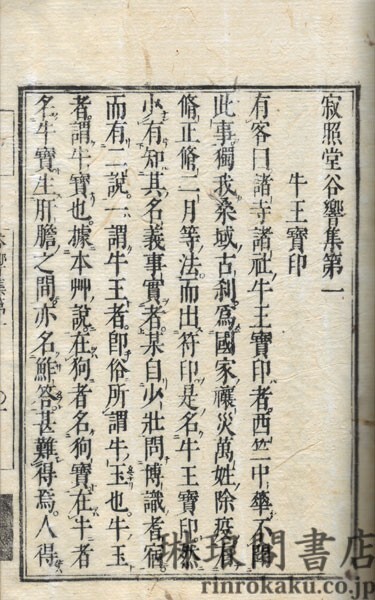 寂照堂谷響集第一
牛王寶印
有客曰諸寺諸社牛王寶印者西竺中華不聞
此事獨我桑域古刹爲國家禳災萬姓除疫
脩正脩二月等法而出符印是名牛王寶印然
少有知其名義事實者某自少壯問博識者宿
而有二說一謂牛王者卽俗所謂牛玉也牛玉
者謂牛寶也據本艸說在狗者名狗寶在牛者
名牛寶生肝膽之間亦名鮓答甚難得焉人得
琳琅閣書店
rinrokaku.co.jp